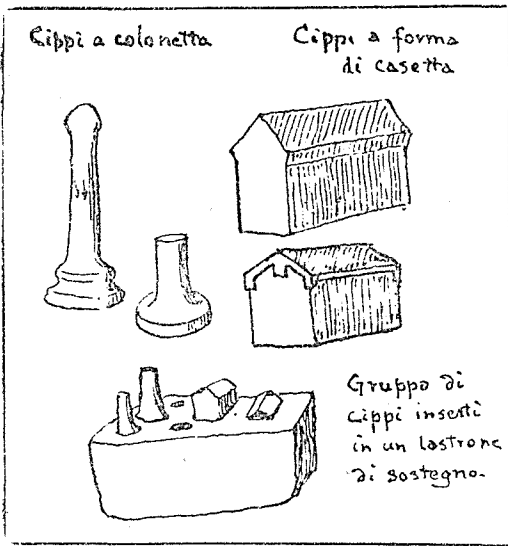 Cippi a colonetta
Cippi a forma
di casetta
Gruppo di
cippi inserti
in un lastrone
di sostegno.